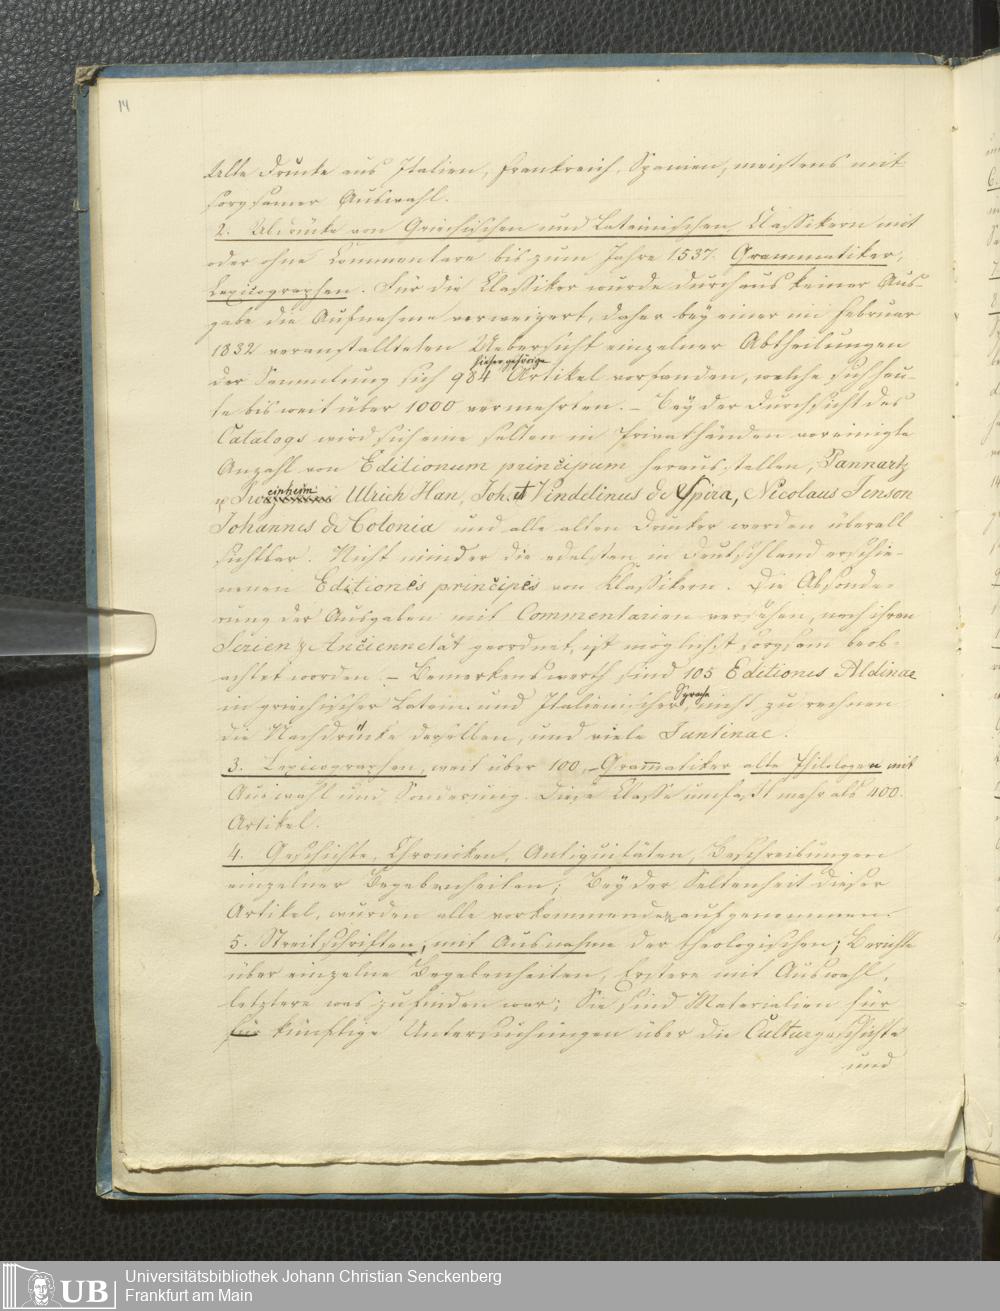 14
Alte Drucke aus Italien, Frankreich, Spanien, meistens mit
sorgsamer Auswahl.
2. Abdrücke von Griechischen und Lateinischen Classikern mit
oder ohne Commentare bis zum Jahre 1537. Grammatiker,
Lexicographen. Für die Classiker wurde durchaus keiner Aus-
gabe die Aufnahme verweigert, daher bey einer im Februar
1832 veranstallteten Uebersicht einzelner Abtheilungen
hieher gehörige
der Sammlung sich 984 Artikel vorfanden, welche sich heu-
te bis weit über 1000 vermehrten. – Bey der Durchsicht des
Catalogs wird sich eine selten in Privathänden vereinigte
Anzahl von Editionum principum herausstellen, Pannartz
einheim
Ulrich Han, Joh. et Vindelinus de Spira, Nicolaus Jenson
Johannes de Colonia und alle alten Drucker werden überall
sichtbar. Nicht minder die edelsten in Deutschland erschie-
nenen Editiones principes von Klassikern. Die Absonde-
rung der Ausgaben mit Commentarien versehen, nach ihren
Serien & Anciennetät geordnet, ist möglichst sorgsam beob-
achtet worden. – Bemerkenswerth sind 105 Editiones Aldinae
Sprache
in griechischer Latein. und Italienischer, nicht zu rechnen
die Nachdrücke derselben, und viele Juntinae.
3. Lexicographen, weit über 100, – Grammatiker alte Philologen mit
Auswahl und Sonderung. Diese Classe umfaßt mehr als 400.
Artikel.
4. Geschichte, Chroniken, Antiquitäten, Beschreibungen
einzelner Begebenheiten; Bey der Seltenheit dieser
Artikel, wurden alle vorkommende aufgenommen.
5. Streitschriften, mit Ausnahme der theologischen; Berichte
über einzelne Begebenheiten, Erstere mit Auswahl,
letztere was zu finden war; Sie sind Materialien für
für künftige Untersuchungen über die Culturgeschichte
und
UB
Universitätsbibliothek Johann Christian Senckenberg
Frankfurt am Main